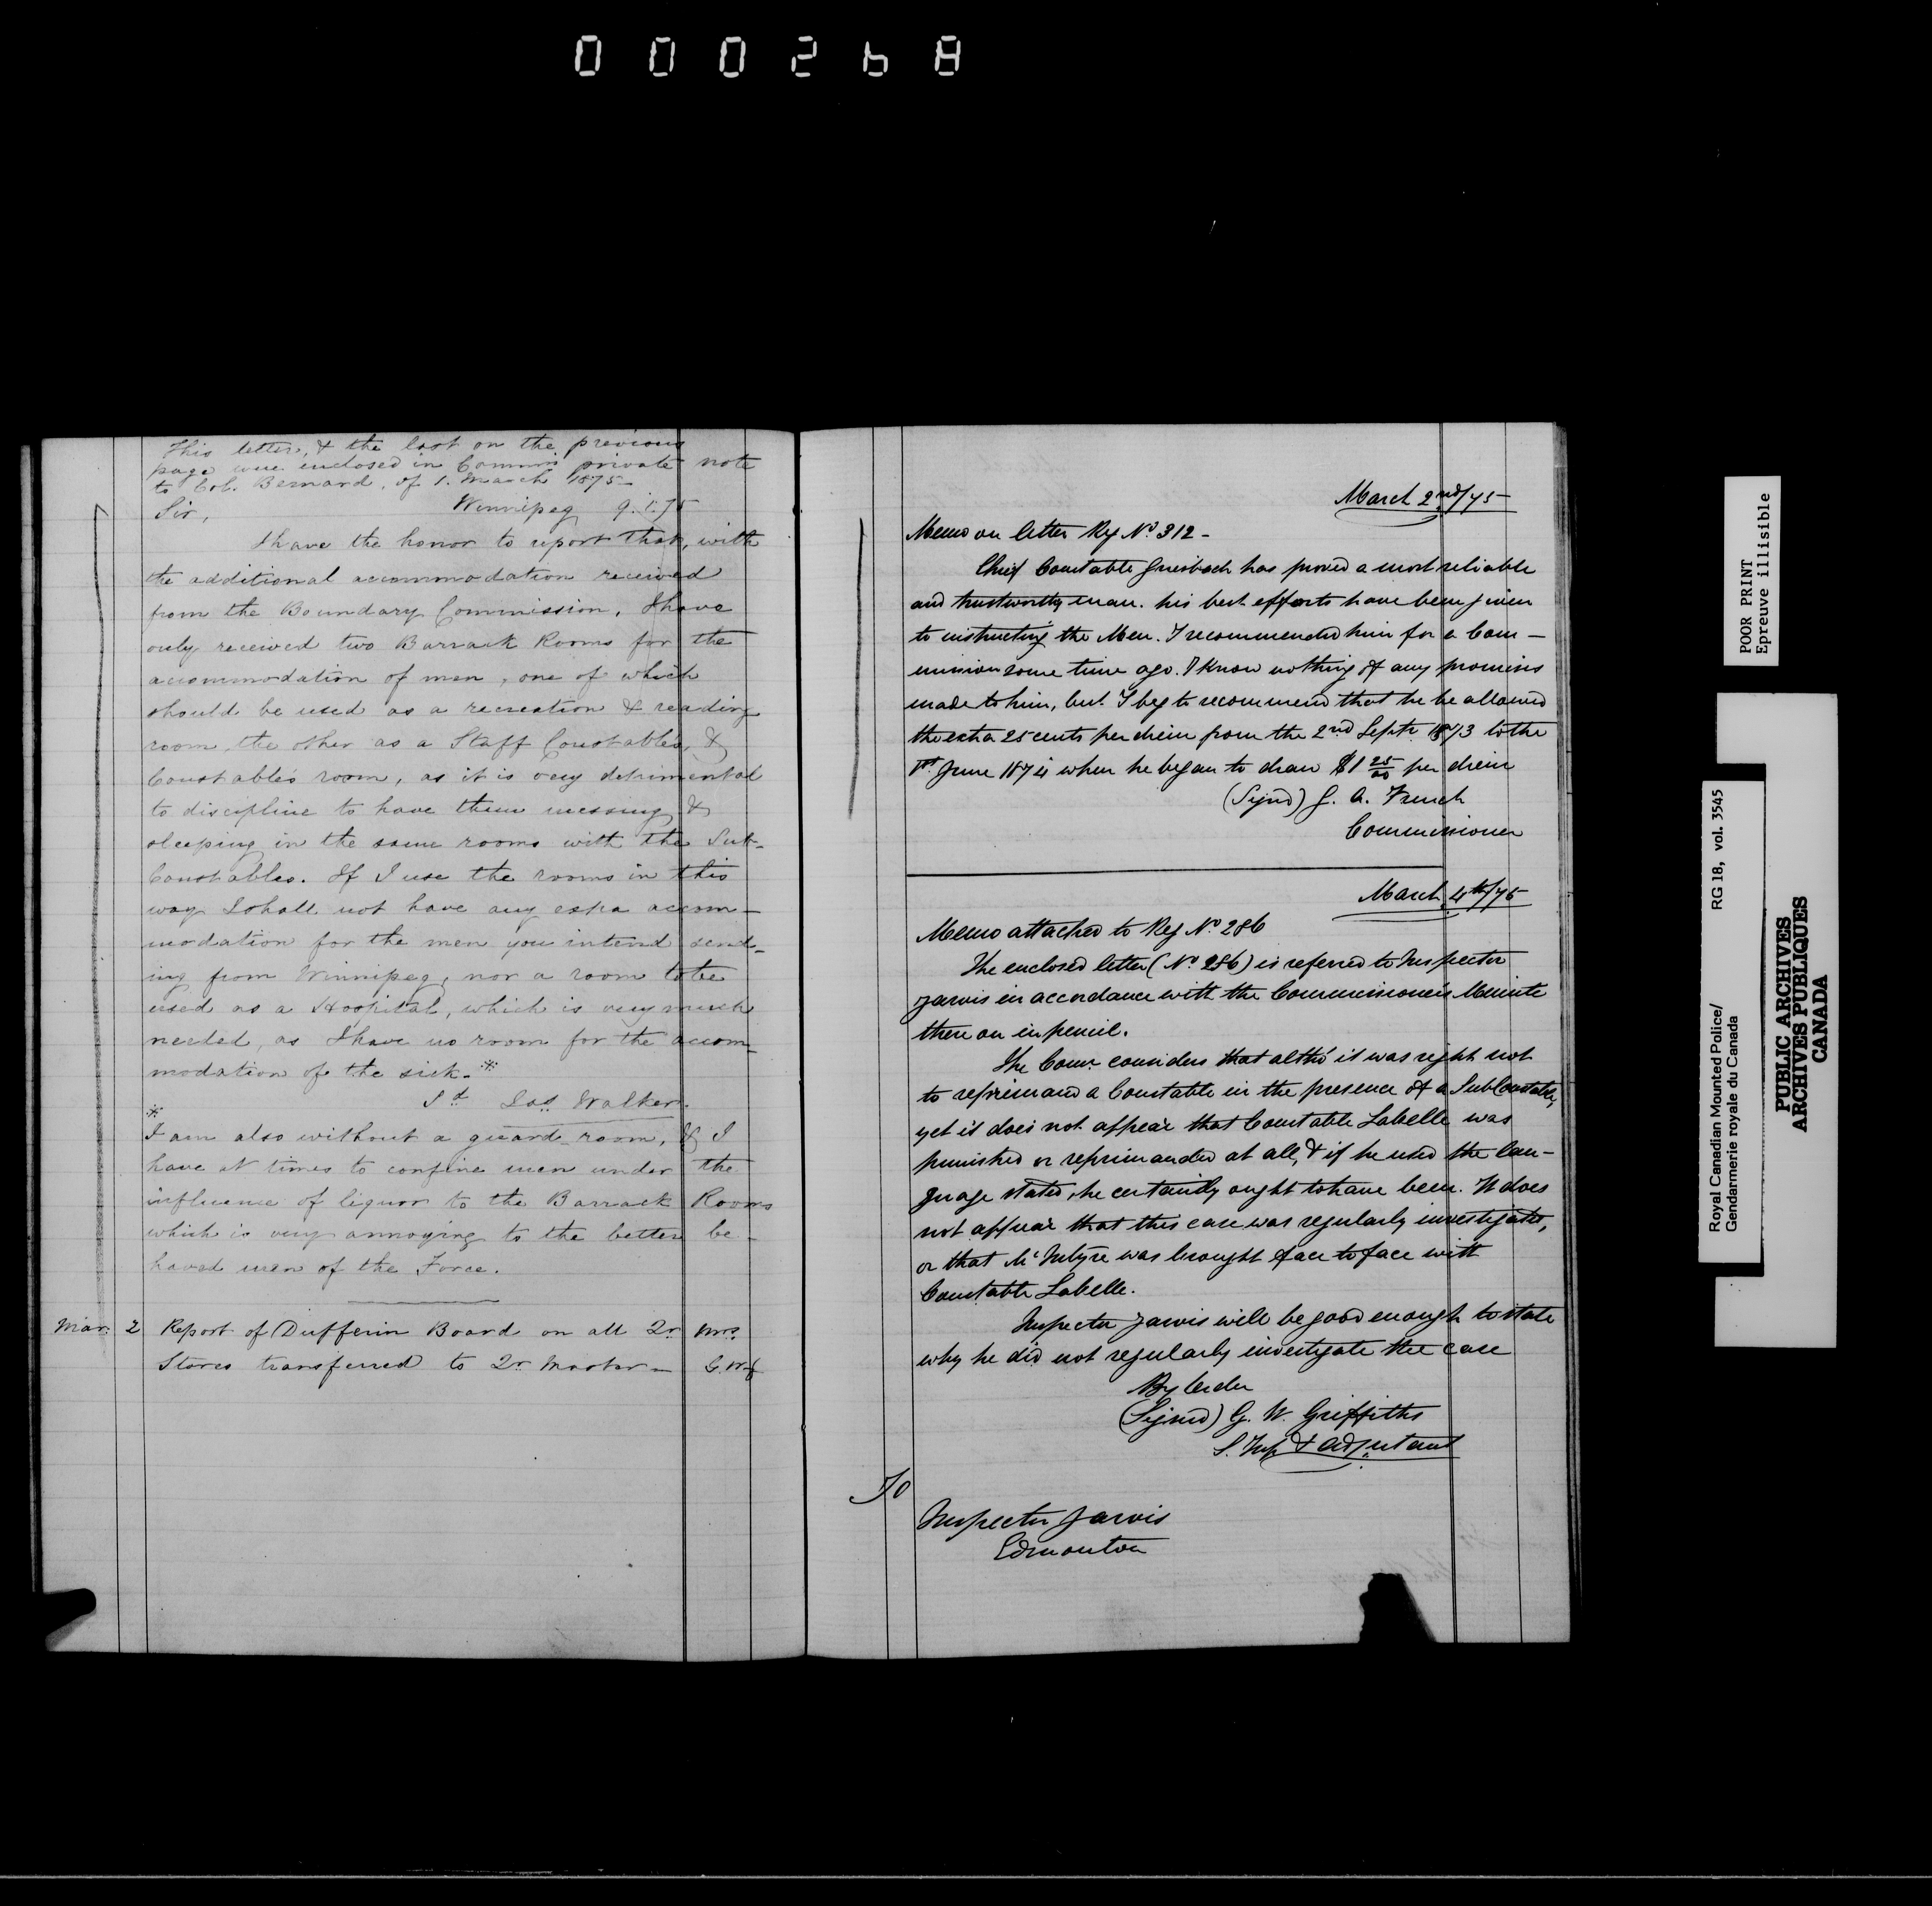 000268
This letter, & the last on the previous
page were enclosed in Commrs private note
to Col. Bernard, of 1. March 1875
Sir, Winnipeg 9.1.75
I have the honor to report that, with
the additional accommodation received
from the Boundary Commission, I have
only received two Barrack Rooms for the
accommodation of men, one of which
should be used as a recreation & reading
room, the other as a Staff Constable's, &
Constable's room, as it is very detrimental
to discipline to have them messing &
sleeping in the same rooms with the Sub-
Constables. If I use the rooms in this
way I shall not have any extra accom-
modation for the men you intend send-
ing from Winnipeg, nor a room to be
used as a Hospital, which is very much
needed, as I have no room for the accom-
modation of the sick. *
Sd Jas Walker.
*
I am also without a guard-room, & I
have at times to confine men under the
influence of liquor to the Barrack Rooms
which is very annoying to the better be-
haved men of the Force.
Mar. 2 Report of Dufferin Board on all Qr Mrs.
Stores transferred to Qr. Master -
March 2nd/75
Memo on letter Reg No. 312 -
Chief Constable Griesbach has proved a most reliable
and trustworthy man. his best efforts have been given
to instructing the Men. I recommended him for a Com-
mission some time ago. I know nothing of any promises
made to him, but I beg to recommend that he be allowed
the extra 25 cents per diem from the 2nd Septr 1873 to the
1st June 1874 when he began to draw $1 25/00 per diem
(Signd) G. A. French
Commissioner
March 4th/75
Memo attached to Reg No. 286
The enclosed letter (No. 286) is referred to Inspector
Jarvis in accordance with the Commissioner's Minute
there on in pencil.
The Comr. considers that altho' it was right not
to reprimand a Constable in the presence of a Sub Constable,
yet it does not appear that Constable Labelle was
punished or reprimanded at all, & if he used the lan-
guage stated, he certainly ought to have been. It does
not appear that this case was regularly investigated,
or that McIntyre was brought face to face with
Constable Labelle.
Inspector Jarvis will be good enough to state
why he did not regularly investigate the case
By Order
(Signd) G. W. Griffiths
S. Insp. & Adjutant
To
Inspector Jarvis
Edmonton
POOR PRINT
Epreuve illisible
Royal Canadian Mounted Police/ RG 18, vol. 3545
Gendarmerie royale du Canada
PUBLIC ARCHIVES
ARCHIVES PUBLIQUES
CANADA